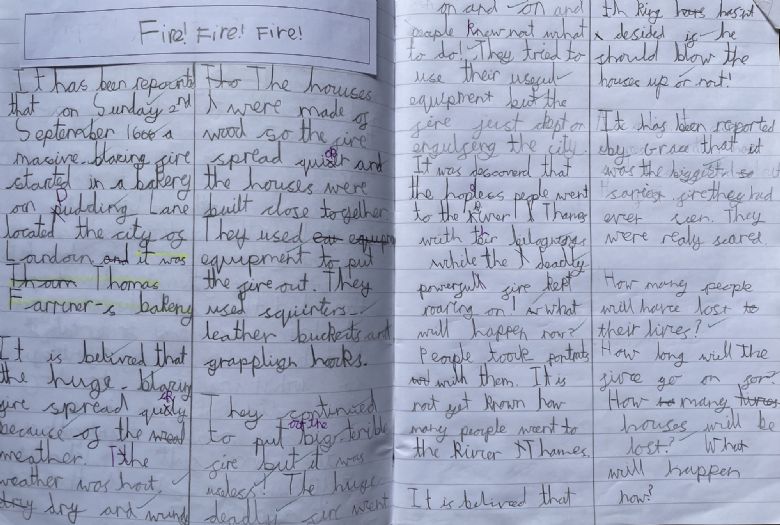 Fire! Fire! Fire!
It has been reports
that on Sunday 2nd
September 1666 a
massive blazing fire
started in a bakery
on Pudding Lane
located the city of
Loundoun and it was
Thoum Thomas
Farriner-s bakery
It is belived that
the huge blazing
fire spread quikly
because of the
weather. The
weather was hout,
dry dry and
The houses
were made of
wood so the fire
spread quikt and
the houses were
built close together
They used equipm
equipment to put
the fire out. They
used squirters
leather buckets and
grappligh hooks.
They continued
to put out the big terible
fire but it was
useless! The huge
deadly fire went
on and on and
people knew not what
to do! They tried to
use their useful
equipment but the
fire just kept on
engulfing the city.
It was discovered that
the hopless people went
to the River Thames
with their belongings
while the deadly
powerfull fire kept
roaring on! what
will happen now?
People toock portraits
with them. It is
not yet known how
many people went to
the River Thames.
It is belived that
th king hasn't
desided if he
should blow the
houses up or not!
It has been reported
by that it
was the biggest
fire they had
ever seen. They
were realy scared.
How many people
will have lost to
their lives?
How long will the
fire go on for?
How to many
houses will be
lost? What
will happen
now?